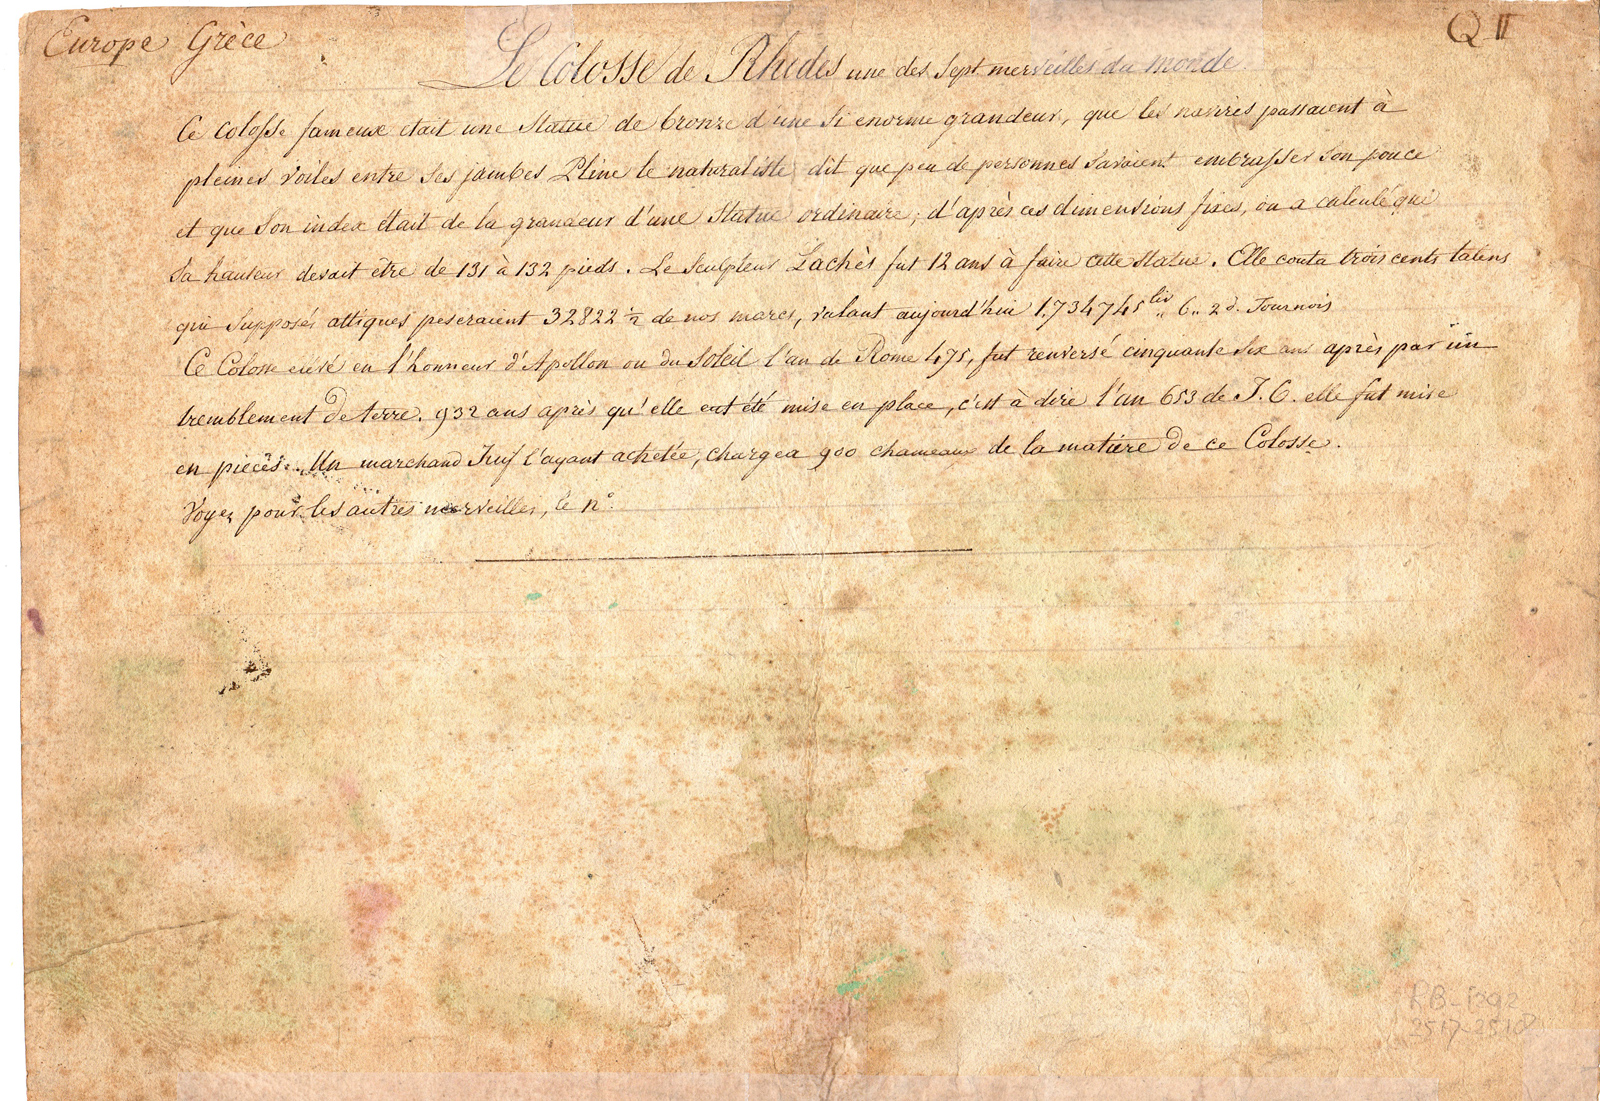 Europe Grèce
Q II
Le Colosse de Rhodes une des sept merveilles du monde.
Ce colosse fameux était une Statue de bronze d'une si enorme grandeur, que les navires passaient à
pleines voiles entre ses jambes Pline le naturaliste dit que peu de personnes savaient embrasser son pouce
et que son index était de la grandeur d'une Statue ordinaire; d'après ces dimensions fixes, on a calculé que
sa hauteur devait être de 131 à 132 pieds. Le Sculpteur Lachès fut 12 ans à faire cette statue. Elle couta trois cents talens
qui supposés attiques peseraient 32822 1/2 de nos marcs, valant aujourd'hui 1.734745 liv „ 6 „ 2 d. Tournois
Ce Colosse élévé en l'honneur d'Apollon ou du Soleil l'an de Rome 475, fut renversé cinquante six ans après par un
tremblement de terre. 932 ans après qu'elle eut été mise en place, c'est à dire l'an 653 de J. C. elle fut mise
en pieces. Un marchand Juif l'ayant achetée, chargea 900 chameaux de la matière de ce Colosse.
Voyez pour les autres merveilles, le n°